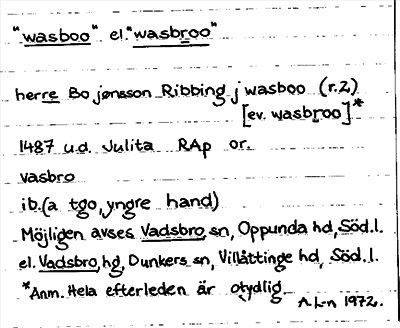 "wasboo" el. "wasbroo"
herre Bo jønsson Ribbing j wasboo (r.2)
[ev. wasbroo]*
1487 u.d. Julita RAp or.
vasbro
ib. (a tgo, yngre hand)
Möjligen avses Vadsbro sn, Oppunda hd, Söd.l.
el. Vadsbro, hg, Dunkers sn, Villåttinge hd, Söd.l.
*Anm. Hela efterleden är otydlig
A.L-n 1972.